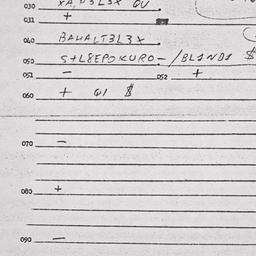 030 XA,P3L3X QU
031 +
040 BAHALT3L3X
050 S+L8EPOKURO-/BL3ND3 $
051 - 052 +
060 + Q1 $
070 -
080 +
090 -